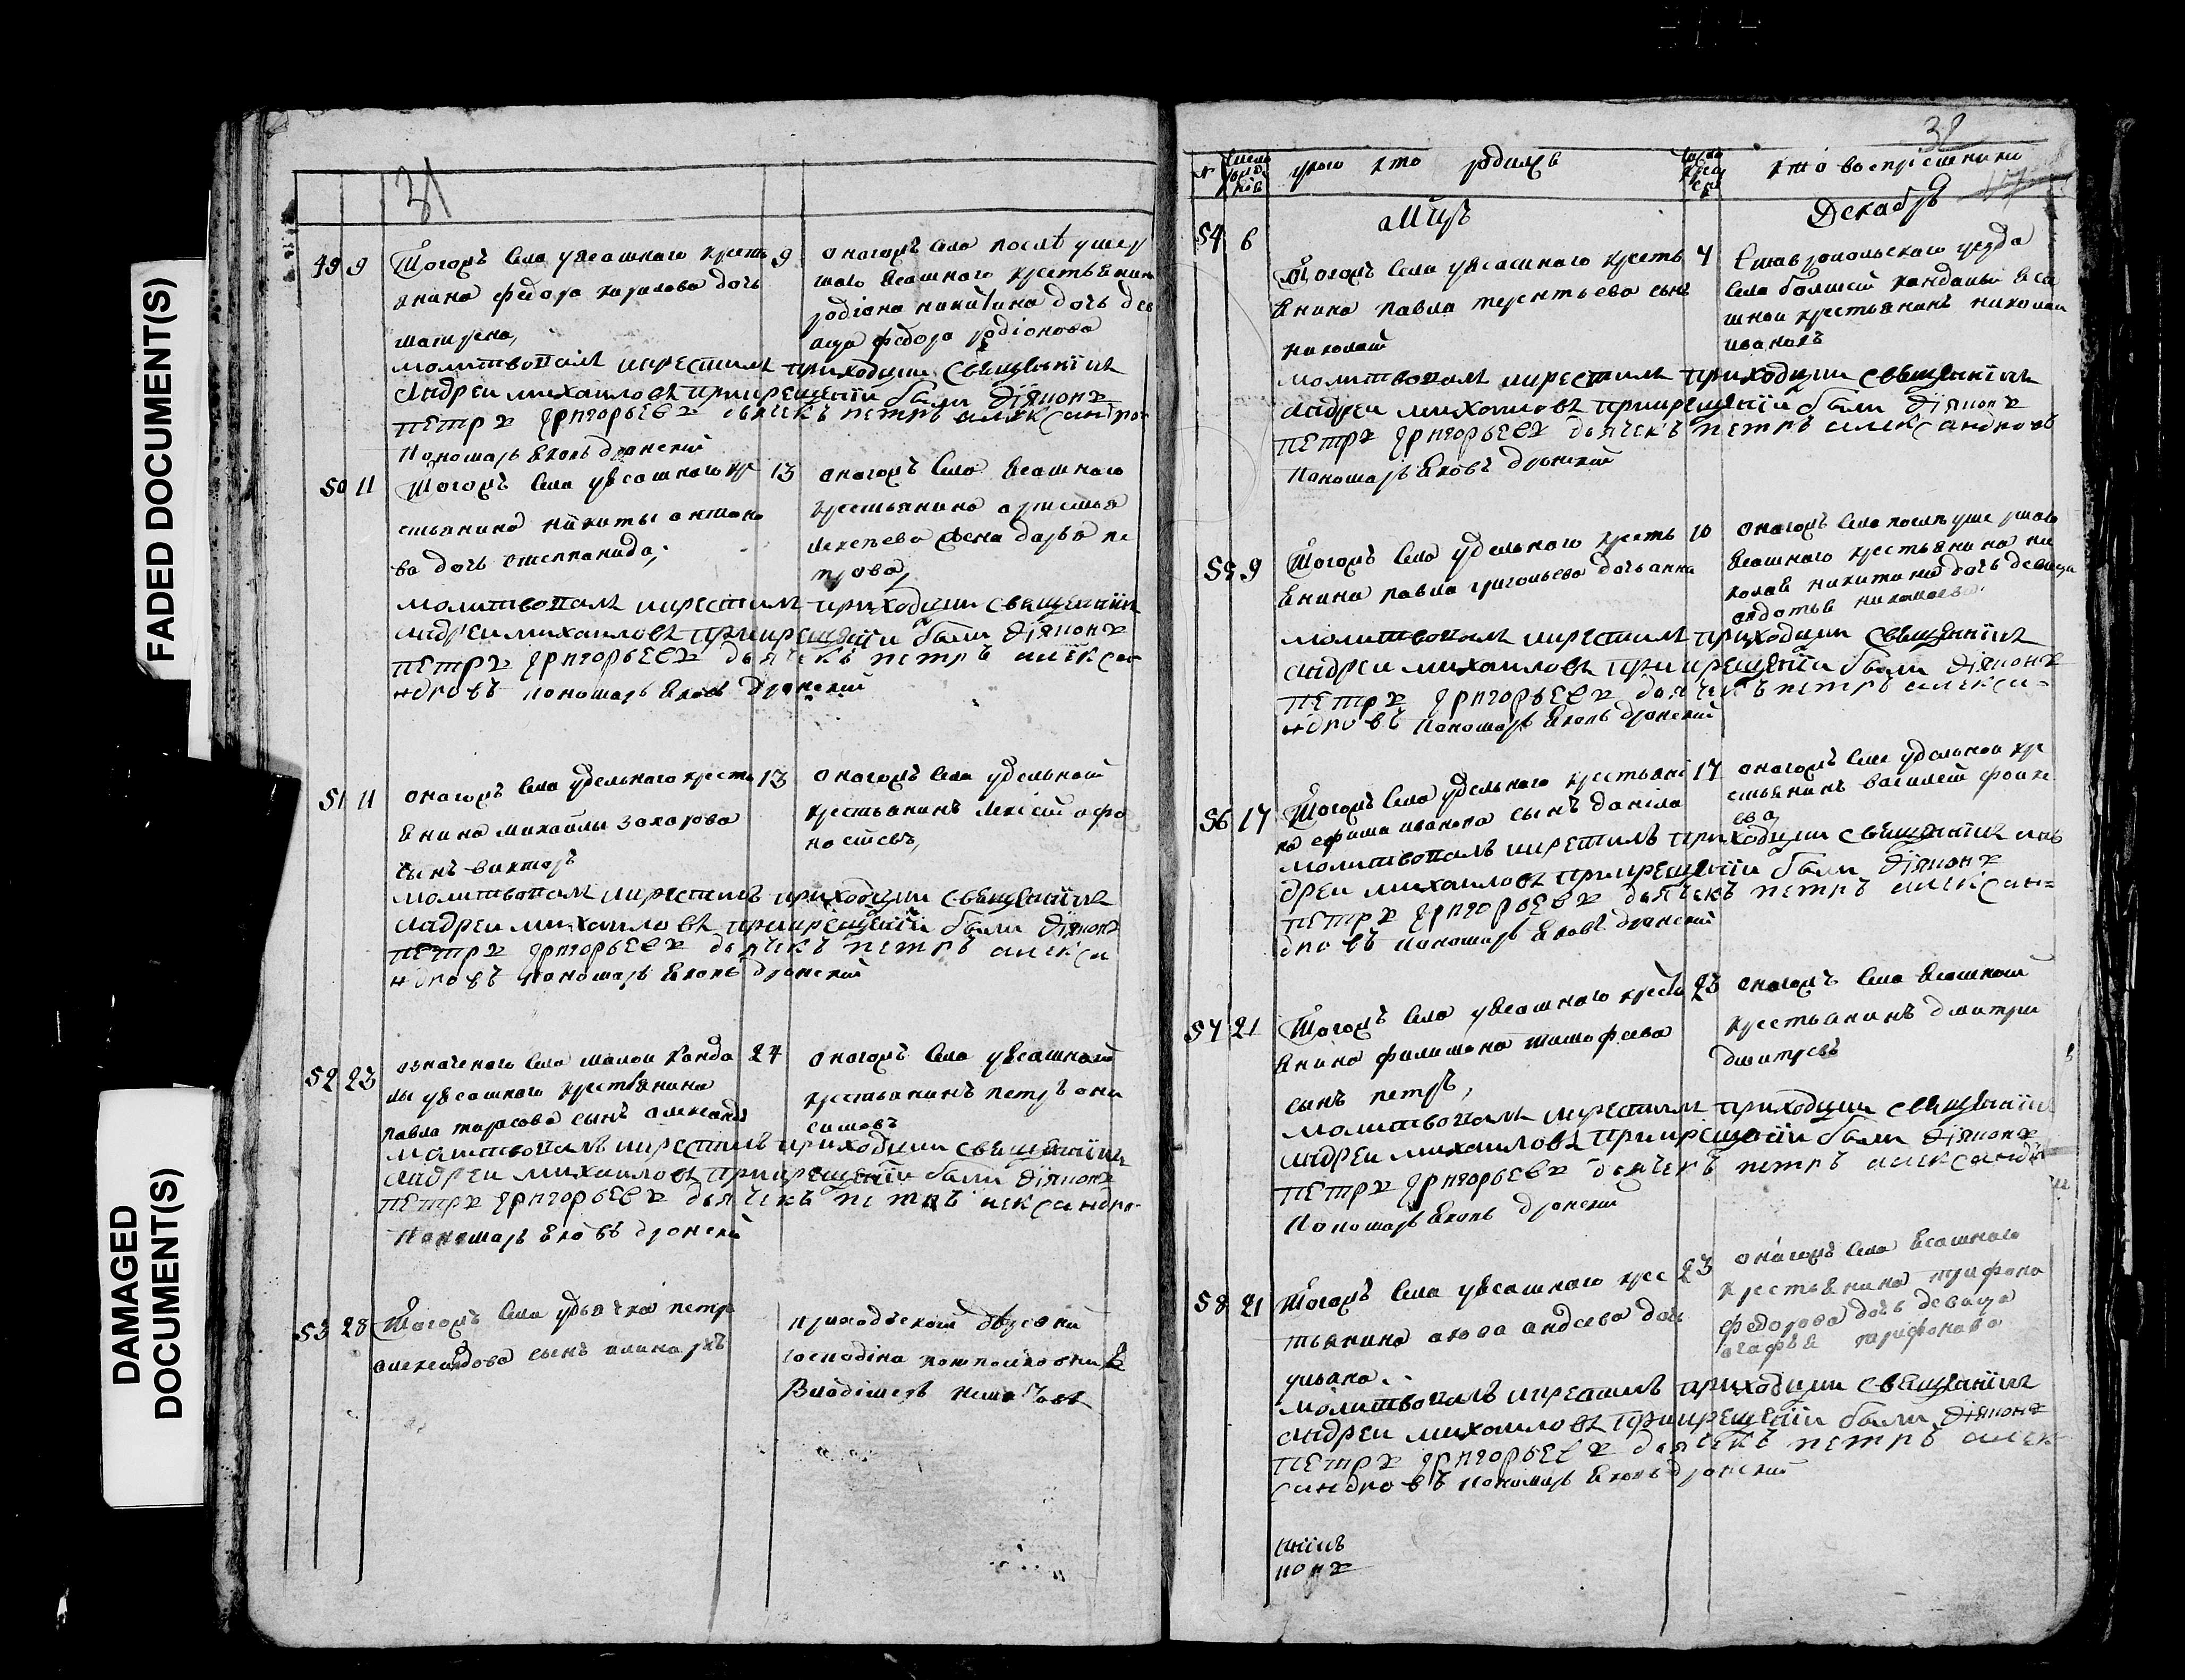 FADED DOCUMENT(S)
DAMAGED
DOCUMENT(S)
31
49 9 Тогожъ села уясашнаго кресть
янина федора кирилова дочь
матрена,
9 онагожъ села послѣ умер
шаго ясашнаго крестьянина
родіона никитина дочь дев
ица федора родіонова
молитвовалъ икрестилъ приходцкии священникъ
андреи михаиловъ прикрещеніи были діяконъ
петръ григорьевъ дьячекъ петръ александро
пономарь яковъ
50 11 Тогожъ села уясашнаго кр
стьянина никиты антоно
ва дочь степанида,
13 онагожъ села ясашнаго
крестьянина
жена дарья пе
трова,
молитвовалъ икрестилъ приходцкии священникъ
андреи михаиловъ прикрещеніи были діяконъ
петръ григорьевъ дьячекъ петръ алекса
ндровъ пономарь яковъ
51 11 онагожъ села удельнаго кресть
янина михаилы захарова
сынъ викторъ
13 онагожъ села удельной
крестьянинъ алексѣй афо
насьевъ,
молитвовалъ икрестилъ приходцкии священникъ
андреи михаиловъ прикрещеніи были діяконъ
петръ григорьевъ дьячекъ петръ алекса
ндровъ пономарь яковъ
52 23 означенаго села малои канда
лы уясашнаго крестьянина
павла тарасова сынъ александръ
24 онагожъ села уясашной
крестьянинъ петръ они
симовъ
молитвовалъ икрестилъ приходцкии священникъ
андреи михаиловъ прикрещеніи были діяконъ
петръ григорьевъ дьячекъ петръ алексндро
пономарь яковъ
53 28 Тогожъ села удьячка петра
александрова сынъ
господина
32
№ число рожде нія укого кто родился число креще нія кто воспреемники
Мцъ Декабрь
54 6 Тогожъ села уясашнаго кресть
янина павла терентьева сынъ
николай
7 Ставропольскаго уезда
села болшей кандалы яса
шной крестьянинъ николай
ивановъ
молитвовалъ икрестилъ приходцкии священникъ
андреи михаиловъ прикрещеніи были діяконъ
петръ григорьевъ дьячекъ петръ александровъ
пономарь яковъ
55 9 Тогожъ села удельнаго кресть
янина павла григорьева дочь анна
10 онагожъ села послѣ умершаго
ясашнаго крестьянина ни
колая никитина дочь девица
авдотья николаева
молитвовалъ икрестилъ приходцкии священникъ
андреи михаиловъ прикрещеніи были діяконъ
петръ григорьевъ дьячекъ петръ алекса-
ндровъ пономарь яковъ
56 17 Тогожъ села удельнаго крестьяни
на ефима иванова сынъ данила
17 онагожъ села удельной кре
стьянинъ василей
ева
молитвовалъ икрестилъ приходцкии священникъ ан
дреи михаиловъ прикрещеніи были діяконъ
петръ григорьевъ дьячекъ петръ алексан-
дровъ пономарь яковъ
57 21 Тогожъ села уясашнаго кресть
янина филимона тимофеева
сынъ петръ,
23 онагожъ села ясашной
крестьянинъ дмитри
дмитревъ
молитвовалъ икрестилъ приходцкии священникъ
андреи михаиловъ прикрещеніи были діяконъ
петръ григорьевъ дьячекъ петръ александр
пономарь яковъ
58 21 Тогожъ села уясашнаго крес
тьянина дочь
ульяна
23 онагожъ села ясашнаго
крестьянина трифона
федорова дочь девица
агафья трифонова
молитвовалъ икрестилъ приходцкии священникъ
андреи михаиловъ прикрещеніи были діяконъ
петръ григорьевъ дьячекъ петръ алек
сандровъ пономарь яковъ